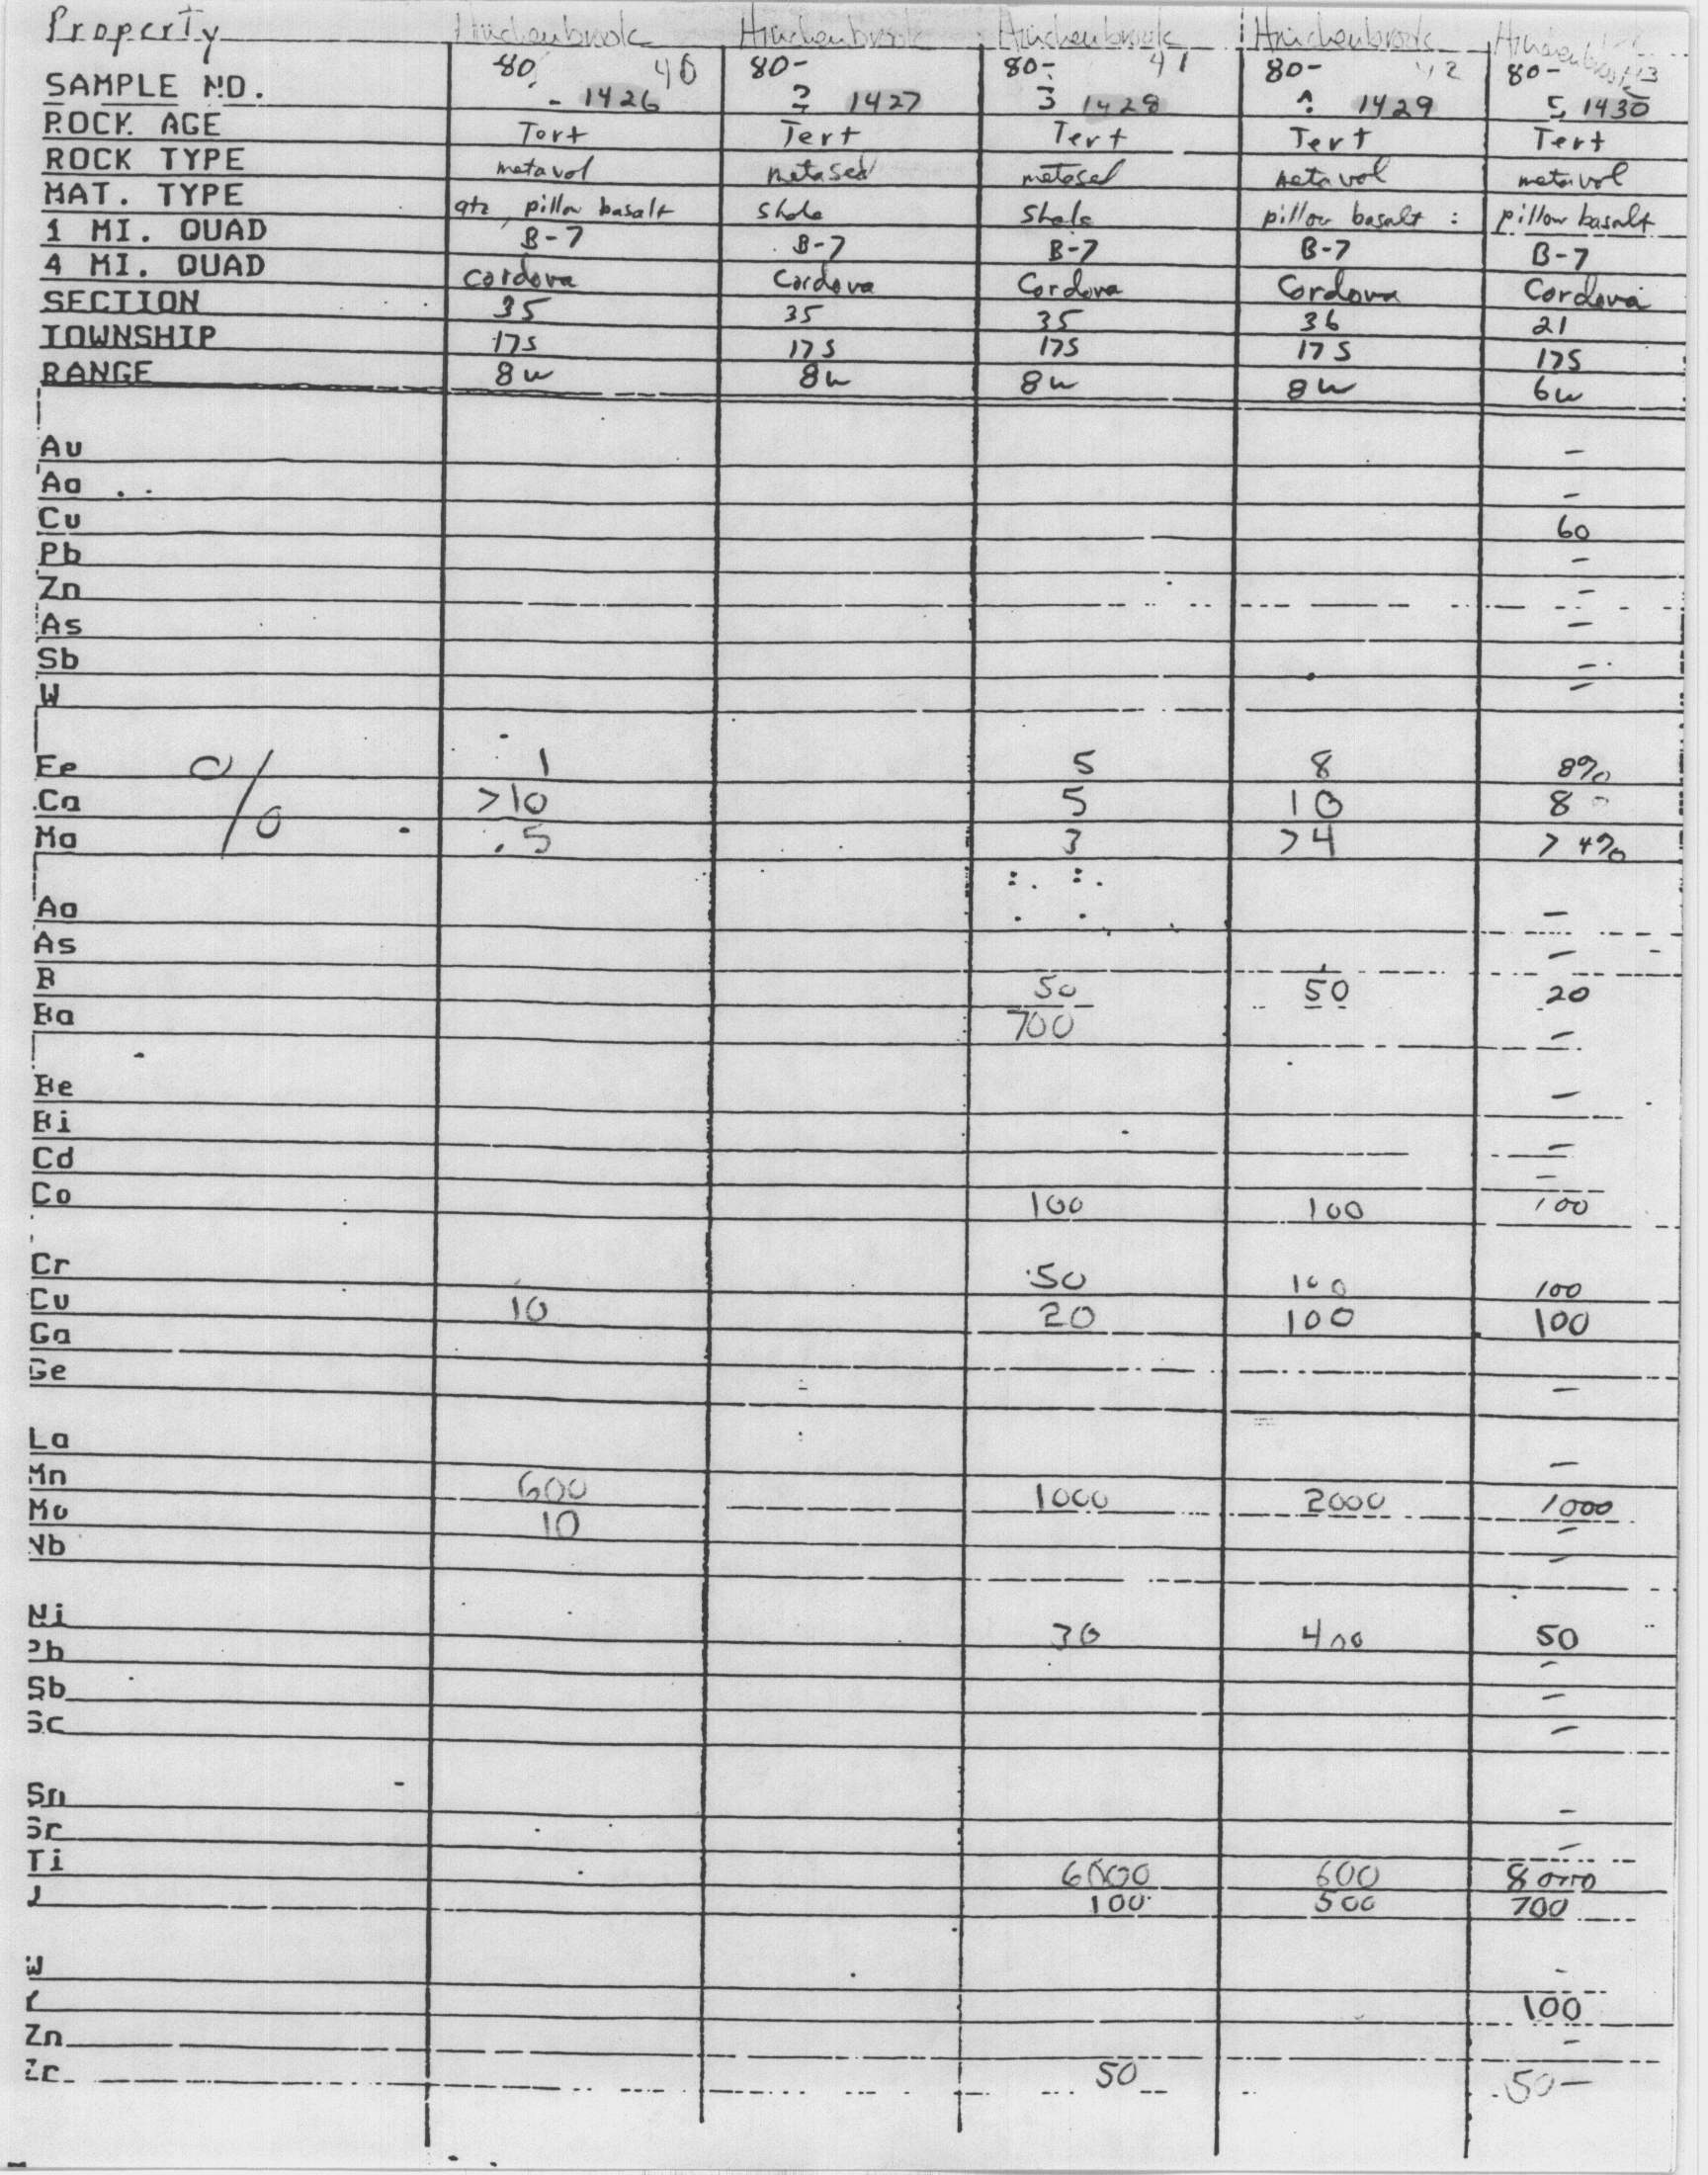 Property Hinchenbrook Hinchenbrook Hinchenbrook Hinchenbrook Hinchenbrook
80 40 80- 80- 41 80- 42 80- 43
SAMPLE NO. - 1426 2 1427 3 1428 1429 5 1430
ROCK AGE Tert Tert Tert Tert Tert
ROCK TYPE metavol metased metased metavol metavol
MAT. TYPE qtz, pillow basalt Shale Shale pillow basalt pillow basalt
1 MI. QUAD B-7 B-7 B-7 B-7 B-7
4 MI. QUAD Cordova Cordova Cordova Cordova Cordova
SECTION 35 35 35 36 21
TOWNSHIP 17S 17S 17S 17S 17S
RANGE 8W 8W 8W 8W 6W
Au -
Ag -
Cu 60
Pb -
Zn -
As -
Sb -
W -
Fe % 1 5 8 8%
Ca >10 5 10 8
Mg .5 3 >4 >4%
Ag -
As -
B 50 50 20
Ba 700 -
Be -
Bi -
Cd -
Co 100 100 100
Cr 50 100 100
Cu 10 20 100 100
Ga
Ge -
La -
Mn 600 1000 2000 1000
Mo 10 -
Nb -
Ni 30 400 50
Pb -
Sb -
Sc -
Sn -
Sr -
Ti 6000 600 8000
V 100 500 700
W -
Y 100
Zn -
Zr 50 50 -